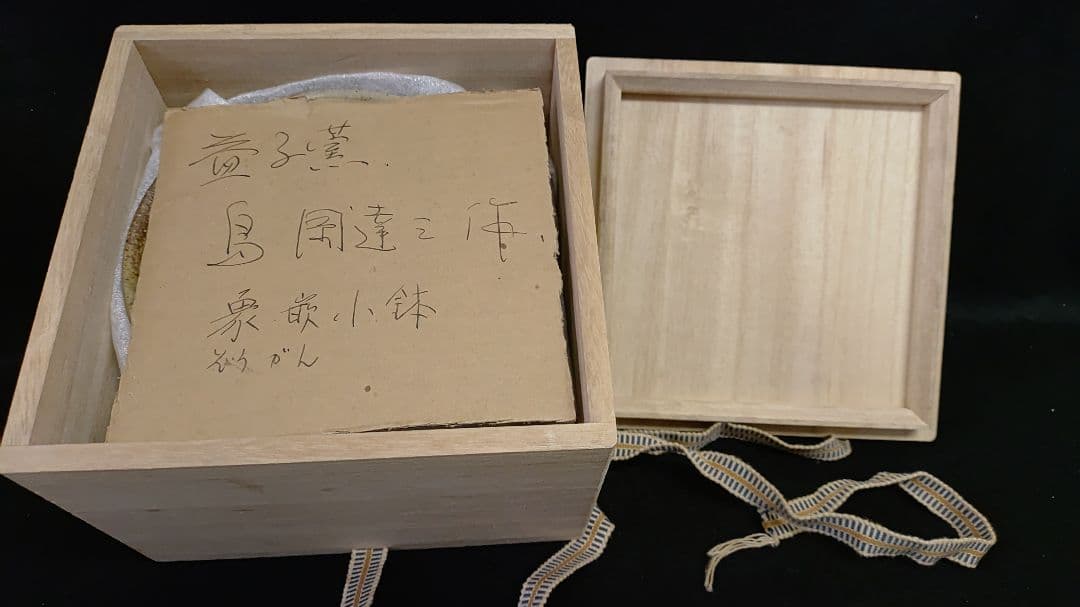 益子窯.
島岡達三作、
象嵌小鉢
ぞうがん